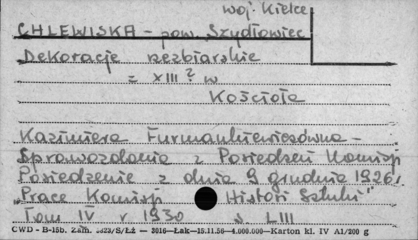 woj. Kielce
CHLEWISKA - pow. Szydłowiec
Dekoracje rzeźbiarskie
z XIII? w
Kościoła
Kazimiera Furmankiewiczówna -
Sprawozdania z Posiedzeń Komisji
Posiedzenie z dnia 9 grudnia 1926r.
"Prace Komisji Histori Sztuki"
Tom IV r 1930 s LIII
CWD - B-15b. Zam. /S/Łż — 3016—Łak—15.11.56—4.000.000—Karton kl. IV A1/200 g